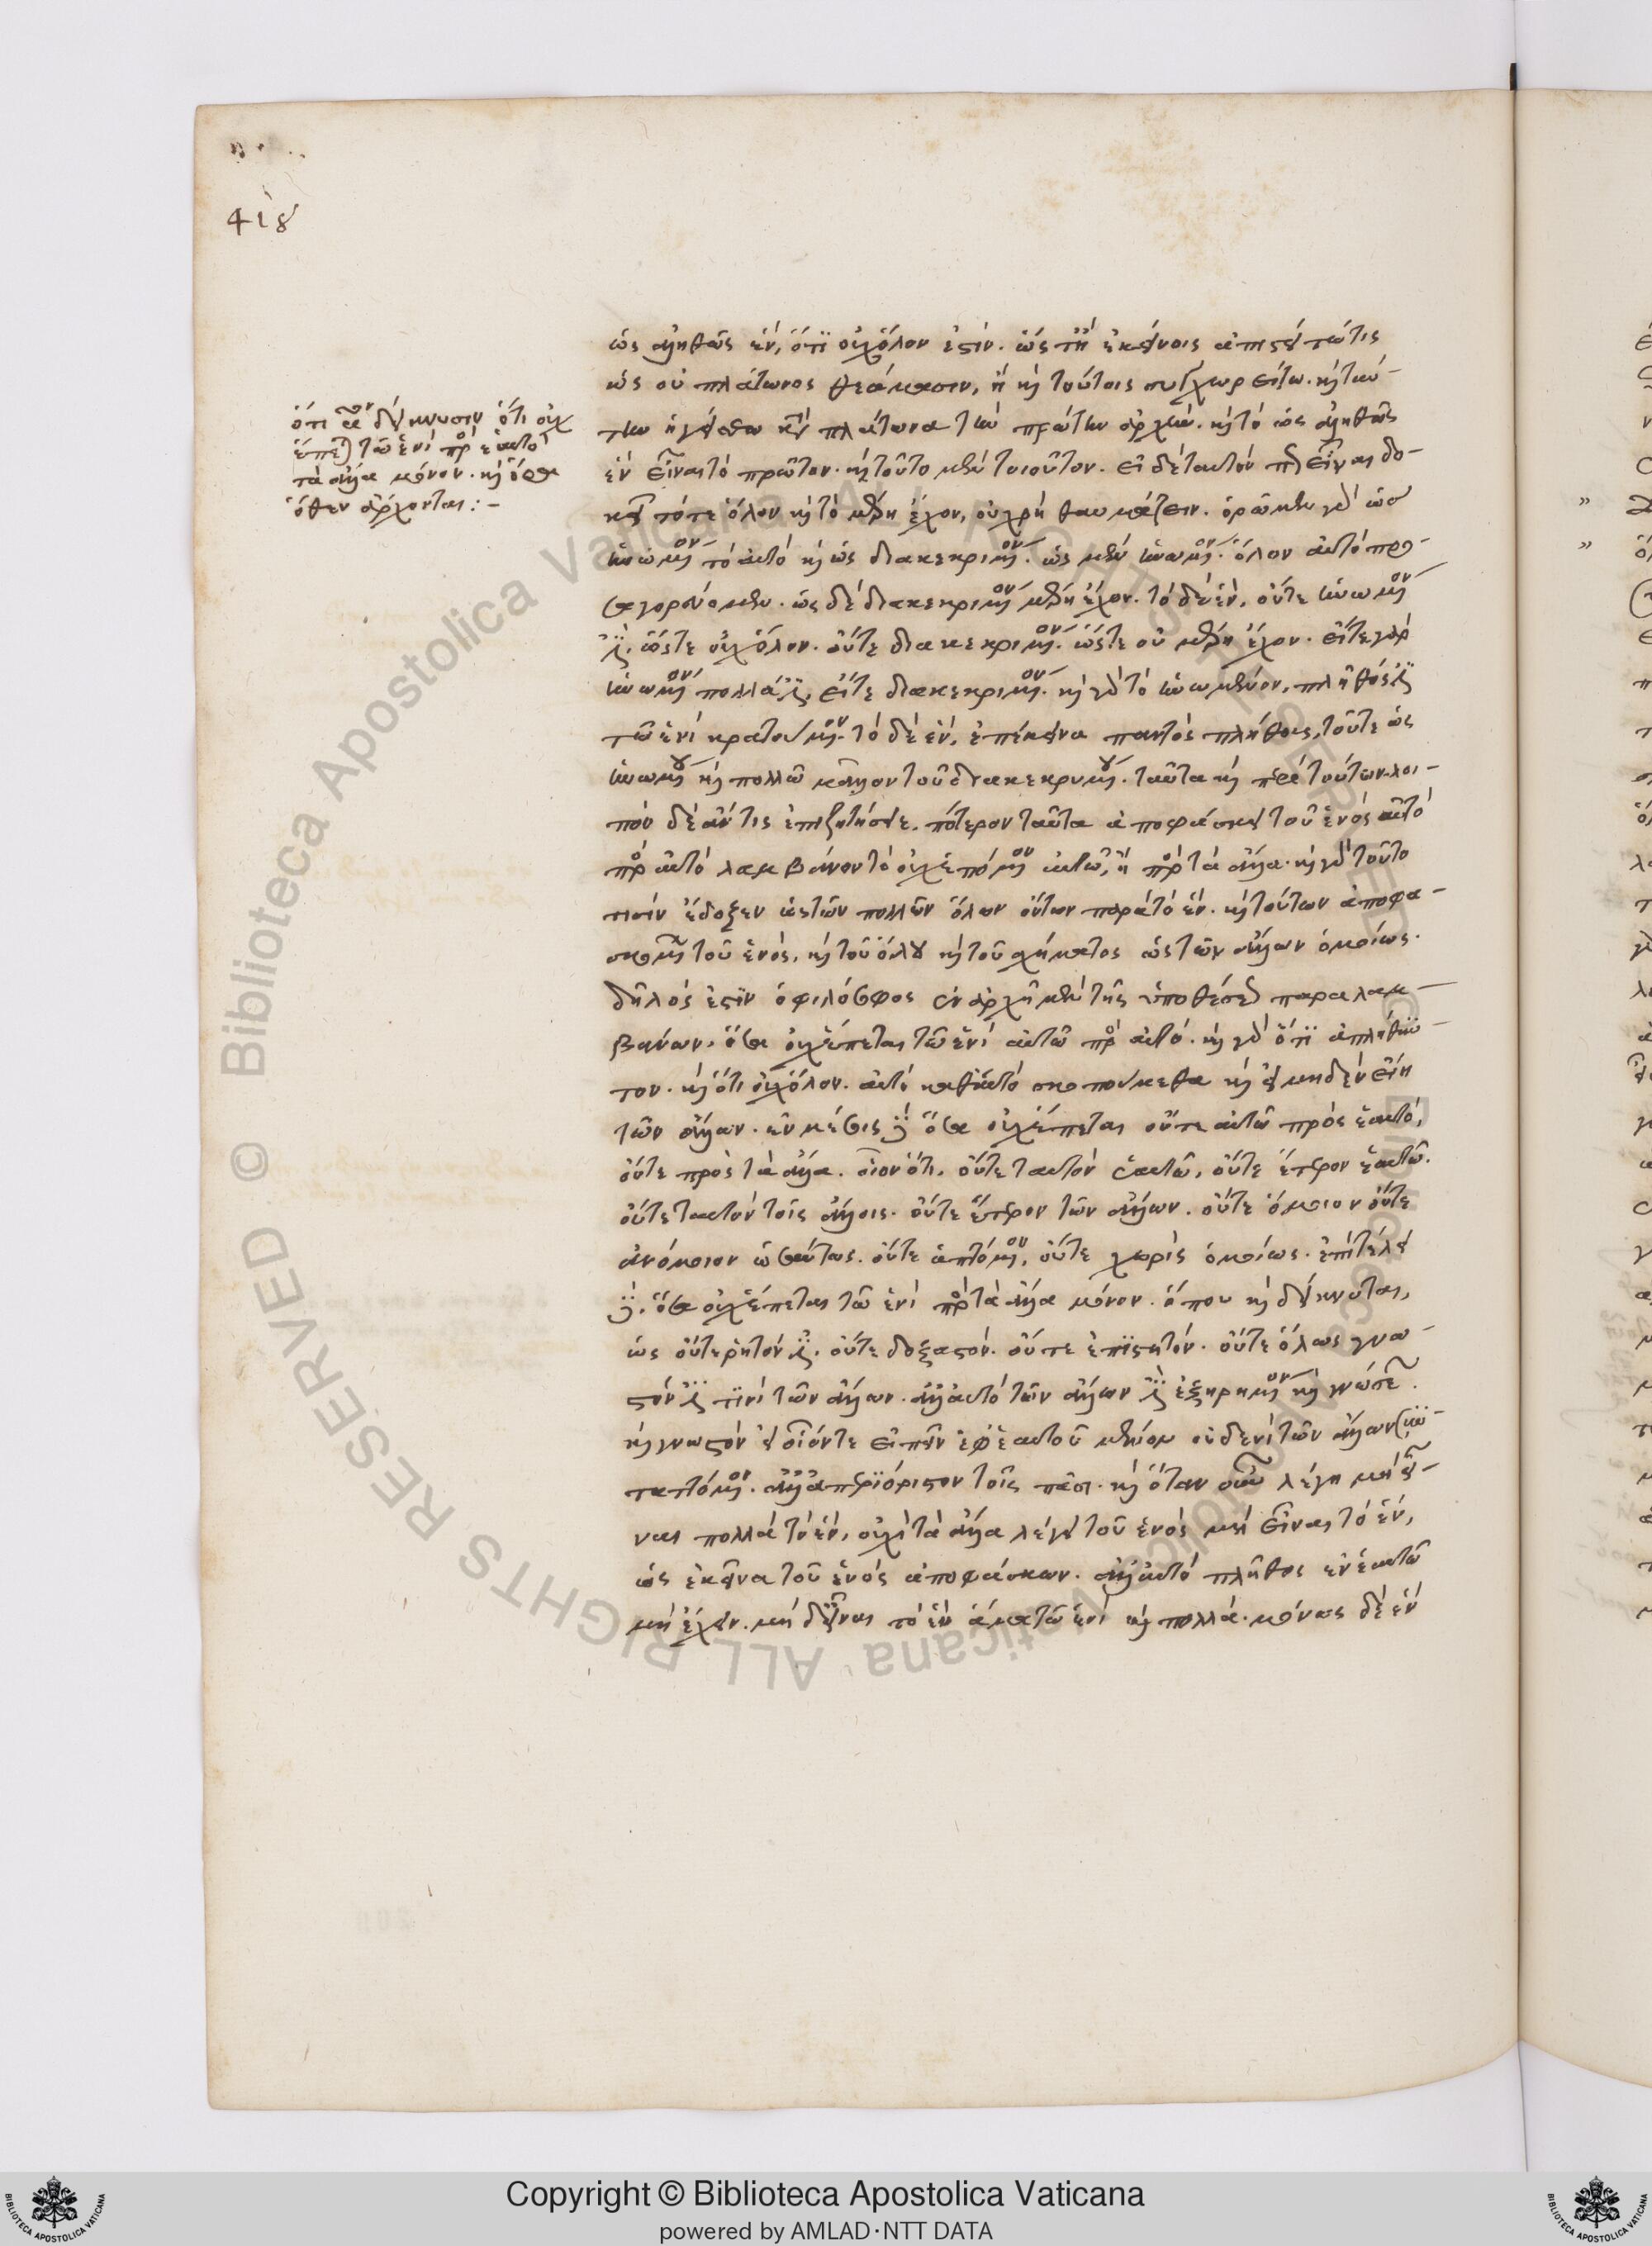 418
ὅτι δείκνυσιν ὅτι οὐχ
ἕπεται τῷ ἑνὶ πρὸς ἑαυτὸ
τὰ ἄλλα μόνον. καὶ ὅσα
ὅθεν ἄρχονται :-
ὡς ἀληθῶς ἕν, ὅτι οὐχ ὅλον ἐστίν. ὥστε ἐκείνοις ἀπιστείτω τις
ὡς οὐ πλάτωνος θεάμασιν, ἢ καὶ τούτοις συγχωρείτω. καὶ ταύ-
την ἡγείσθω κατὰ πλάτωνα τὴν πρώτην ἀρχήν. καὶ τὸ ὡς ἀληθῶς
ἓν εἶναι τὸ πρῶτον. καὶ τοῦτο μὲν τοιοῦτον. εἰ δὲ ταυτὸν εἶναι δο-
κεῖ τό τε ὅλον καὶ τὸ μέρη ἔχον, οὐ χρὴ θαυμάζειν. ὁρῶμεν γὰρ ὡς
ἡνωμένον τὸ αὐτὸ καὶ ὡς διακεκριμένον. ὡς μὲν ἡνωμένον. ὅλον αὐτὸ προ-
σαγορεύομεν. ὡς δὲ διακεκριμένον μέρη ἔχον. τὸ δὲ ἕν, οὔτε ἡνωμένον
ἐστίν. ὥστε οὐχ ὅλον. οὔτε διακεκριμένον. ὥστε οὐ μέρη ἔχον. εἴτε γὰρ
ἡνωμένον πολλά ἐστιν, εἴτε διακεκριμένον. καὶ γὰρ τὸ ἡνωμένον, πλῆθός ἐστι
τῷ ἑνὶ κρατούμενον. τὸ δὲ ἕν, ἐπέκεινα παντὸς πλήθους, τοῦ τε ὡς
ἡνωμένου καὶ πολλῷ μᾶλλον τοῦ διακεκριμένου. ταῦτα καὶ περὶ τούτων. λοι-
πὸν δὲ ἄν τις ἐπιζητήσειε. πότερον ταῦτα ἀποφάσκει τοῦ ἑνὸς αὐτὸ
πρὸς αὐτὸ λαμβάνων τὸ οὐχ ἑπόμενον αὐτῷ, ἢ πρὸς τὰ ἄλλα. καὶ γὰρ τοῦτο
τισὶν ἔδοξεν ὡς τῶν πολλῶν ὅλων ὄντων παρὰ τὸ ἕν. καὶ τούτων ἀποφα-
σκομένων τοῦ ἑνός, καὶ τοῦ ὅλου καὶ τοῦ σχήματος ὡς τῶν ἄλλων ὁμοίως.
δῆλός ἐστιν ὁ φιλόσοφος ἐν ἀρχῇ μὲν τῆς ὑποθέσεως παραλαμ-
βάνων. ὅσα οὐχ ἕπεται τῷ ἑνὶ αὐτῷ πρὸς αὐτό. καὶ γὰρ ὅτι ἀπλήθυν-
τον. καὶ ὅτι οὐχ ὅλον. αὐτὸ καθ' αὑτὸ σκοπούμεθα καὶ εἰ μηδὲν εἴη
τῶν ἄλλων. ἐν μέσοις δὲ ὅσα οὐχ ἕπεται οὔτε αὐτῷ πρὸς ἑαυτό,
οὔτε πρὸς τὰ ἄλλα. οἷον ὅτι. οὔτε ταυτὸν ἑαυτῷ, οὔτε ἕτερον ἑαυτῷ.
οὔτε ταυτὸν τοῖς ἄλλοις. οὔτε ἕτερον τῶν ἄλλων. οὔτε ὅμοιον οὔτε
ἀνόμοιον ὡσαύτως. οὔτε ἁπτόμενον, οὔτε χωρὶς ὁμοίως. ἐπὶ τέλει
δὲ. ὅσα οὐχ ἕπεται τῷ ἑνὶ πρὸς τὰ ἄλλα μόνον. ὅπου καὶ δείκνυται,
ὡς οὔτε ῥητόν ἐστιν. οὔτε δοξαστόν. οὔτε ἐπιστητόν. οὔτε ὅλως γνω-
στόν ἐστί τινι τῶν ἄλλων. ἀλλ' αὐτὸ τῶν ἄλλων ἐστὶν ἐξῃρημένον καὶ γνώσεων.
καὶ γνωστὸν εἰ οἷόν τε εἰπεῖν ἐφ' ἑαυτοῦ μένον οὐδενὶ τῶν ἄλλων συν-
ταττόμενον. ἀλλ' ἀπεριόριστον τοῖς πᾶσι. καὶ ὅταν οὖν λέγῃ μὴ εἶ-
ναι πολλὰ τὸ ἕν, οὐχὶ τὰ ἄλλα λέγει τοῦ ἑνὸς μὴ εἶναι τὸ ἕν,
ὡς ἐκεῖνα τοῦ ἑνὸς ἀποφάσκων. ἀλλ' αὐτὸ πλῆθος ἐν ἑαυτῷ
μὴ ἔχειν. μὴ δ' εἶναι τὸ ἓν ἅμα τῷ ἑνὶ καὶ πολλά. μόνως δὲ ἓν
Copyright © Biblioteca Apostolica Vaticana
powered by AMLAD·NTT DATA
© Biblioteca Apostolica Vaticana ALL RIGHTS RESERVED